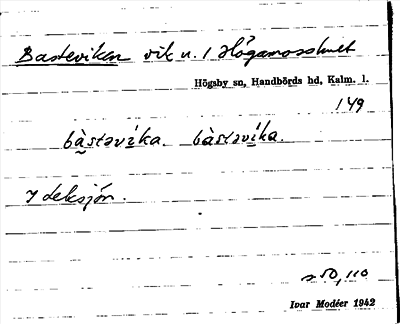 Basteviken vik n. 1 Högamosshult
Högsby sn, Handbörds hd, Kalm. l.
149
bàstəvika. bàstəvíka.
Ydeksjön.
s 50, 110
Ivar Modéer 1942